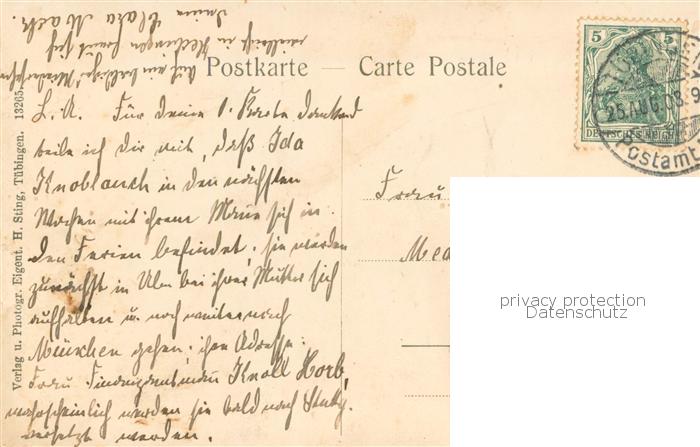 Postkarte — Carte Postale
5
DEUTSCHES REICH
25.AUG.08.9
Postamt
Verlag u. Photogr. Eigent. H. Sting, Tübingen. 13265.
L. A. Für Deine l. Karte dankend
teile ich Dir mit, daß Ida
Knoblauch in den nächsten
Wochen mit ihrem Mann sich in
den Ferien befindet, sie werden
zunächst in Ulm bei ihrer Mutter sich
aufhalten u. noch weiter nach
München gehen; ihre Adresse:
Frau Finanzamtmann Knoll Horb,
wahrscheinlich werden sie bald nach Stuttg.
versetzt werden.
Auf ein baldiges Wiedersehen
vielleicht in Hechingen freut sich
Deine Clara
Frau
privacy protection
Datenschutz